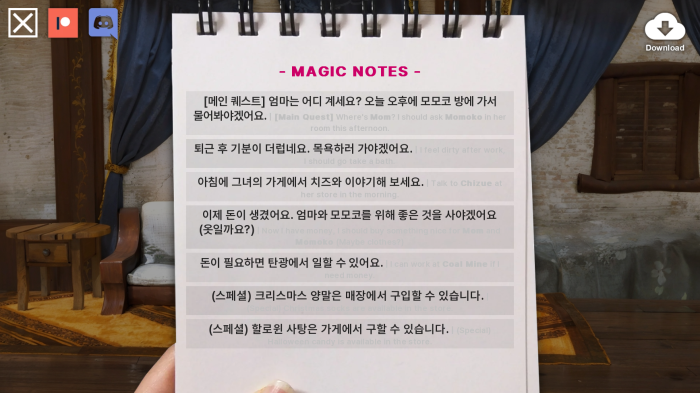 Download
- MAGIC NOTES -
[메인 퀘스트] 엄마는 어디 계세요? 오늘 오후에 모모코 방에 가서
물어봐야겠어요. [Main Quest] Where's Mom? I should ask Momoko in her
room this afternoon.
퇴근 후 기분이 더럽네요. 목욕하러 가야겠어요. I feel dirty after work,
I should go take a bath.
아침에 그녀의 가게에서 치즈와 이야기해 보세요. Talk to Chizue at
her store in the morning.
이제 돈이 생겼어요. 엄마와 모모코를 위해 좋은 것을 사야겠어요
(옷일까요?)
돈이 필요하면 탄광에서 일할 수 있어요. Coal Mine if I
(스페셜) 크리스마스 양말은 매장에서 구입할 수 있습니다.
(스페셜) 할로윈 사탕은 가게에서 구할 수 있습니다. (Special)